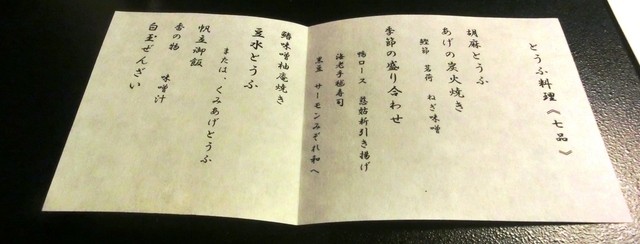 とうふ料理《七品》
胡麻とうふ
あげの炭火焼き
鰹節 茗荷 ねぎ味噌
季節の盛り合わせ
鴨ロース 慈姑新引き揚げ
海老手毬寿司
黒豆 サーモンみぞれ和へ
鰆味噌柚庵焼き
豆水とうふ
または、くみあげとうふ
帆立御飯
味噌汁
香の物
白玉ぜんざい